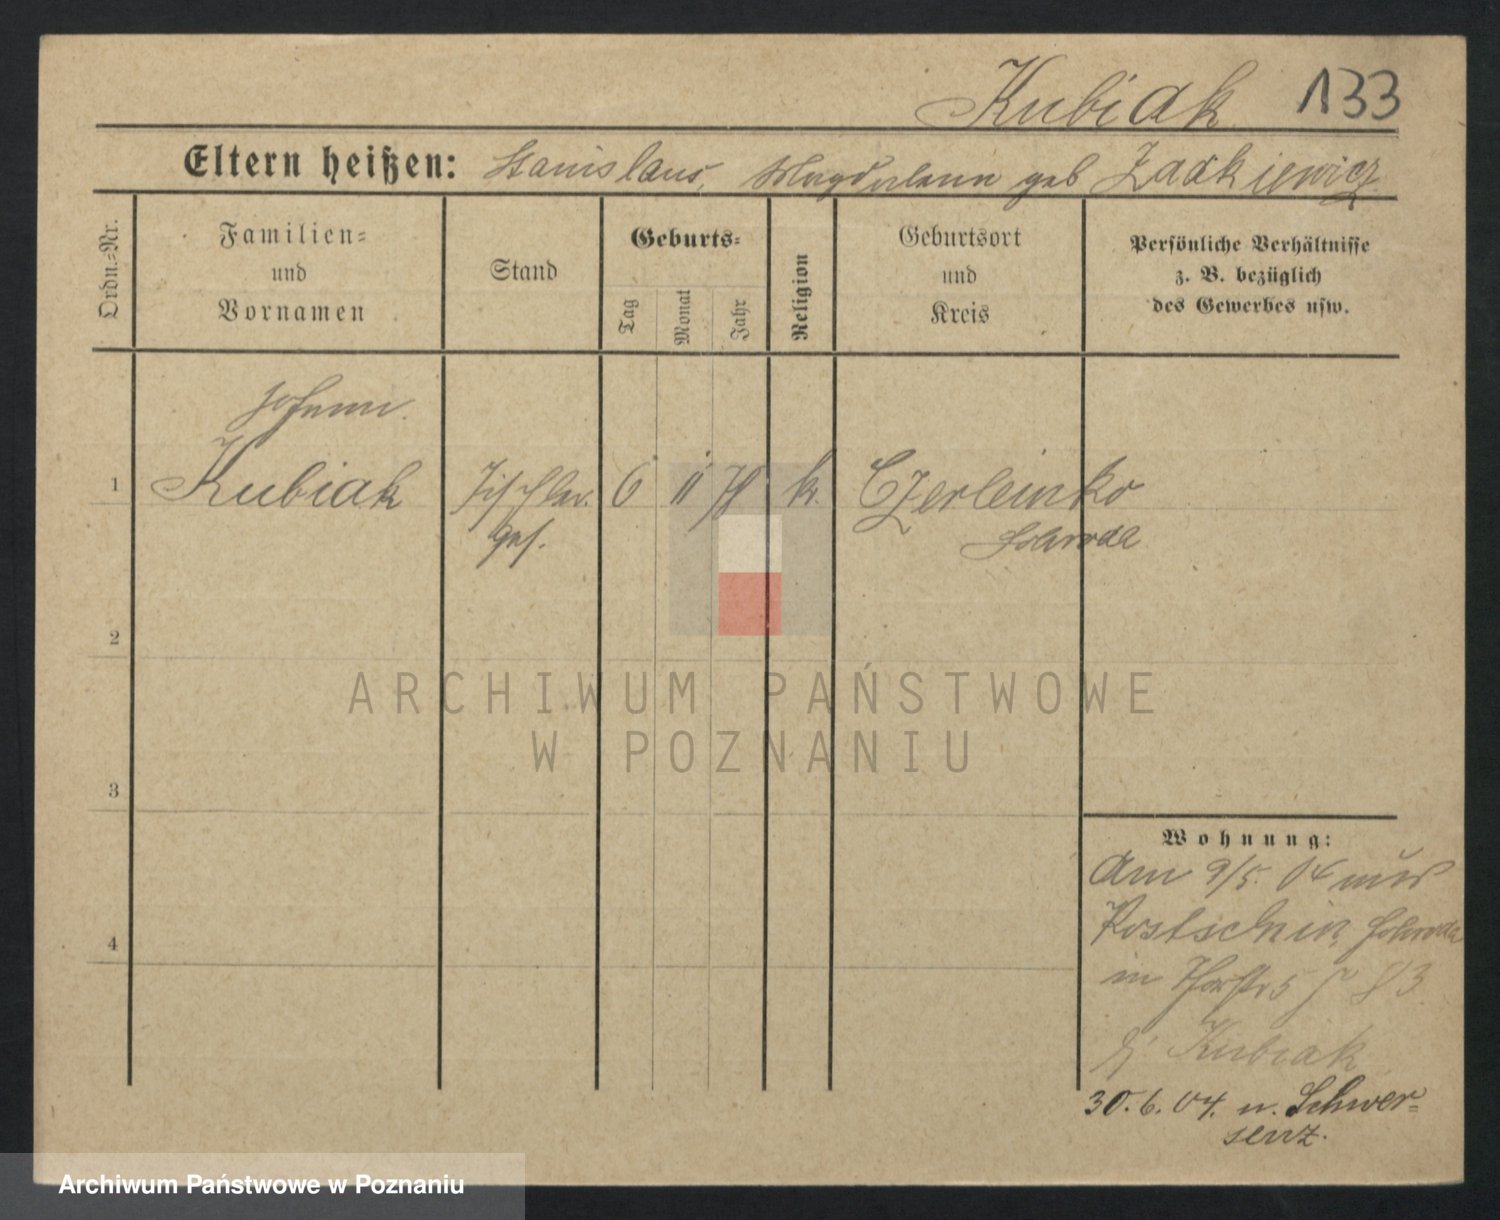 Kubiak 133
Eltern heißen: Stanislaus, Magdalena geb Zadkiewicz
Ordn.-Nr.
Familien-
und
Vornamen
Stand
Geburts-
Tag
Monat
Jahr
Religion
Geburtsort
und
Kreis
Persönliche Verhältnisse
z. B. bezüglich
des Gewerbes usw.
Johann
1 Kubiak Tischler 6 11 78 k. Czerleinko
ges. Schroda
2
3
4
Wohnung:
Am 9/5. 04 aus
Kostschin, Schroda
in
b/ Kubiak
30. 6. 04. n. Schwer-
senz.
ARCHIWUM PAŃSTWOWE
W POZNANIU
Archiwum Państwowe w Poznaniu